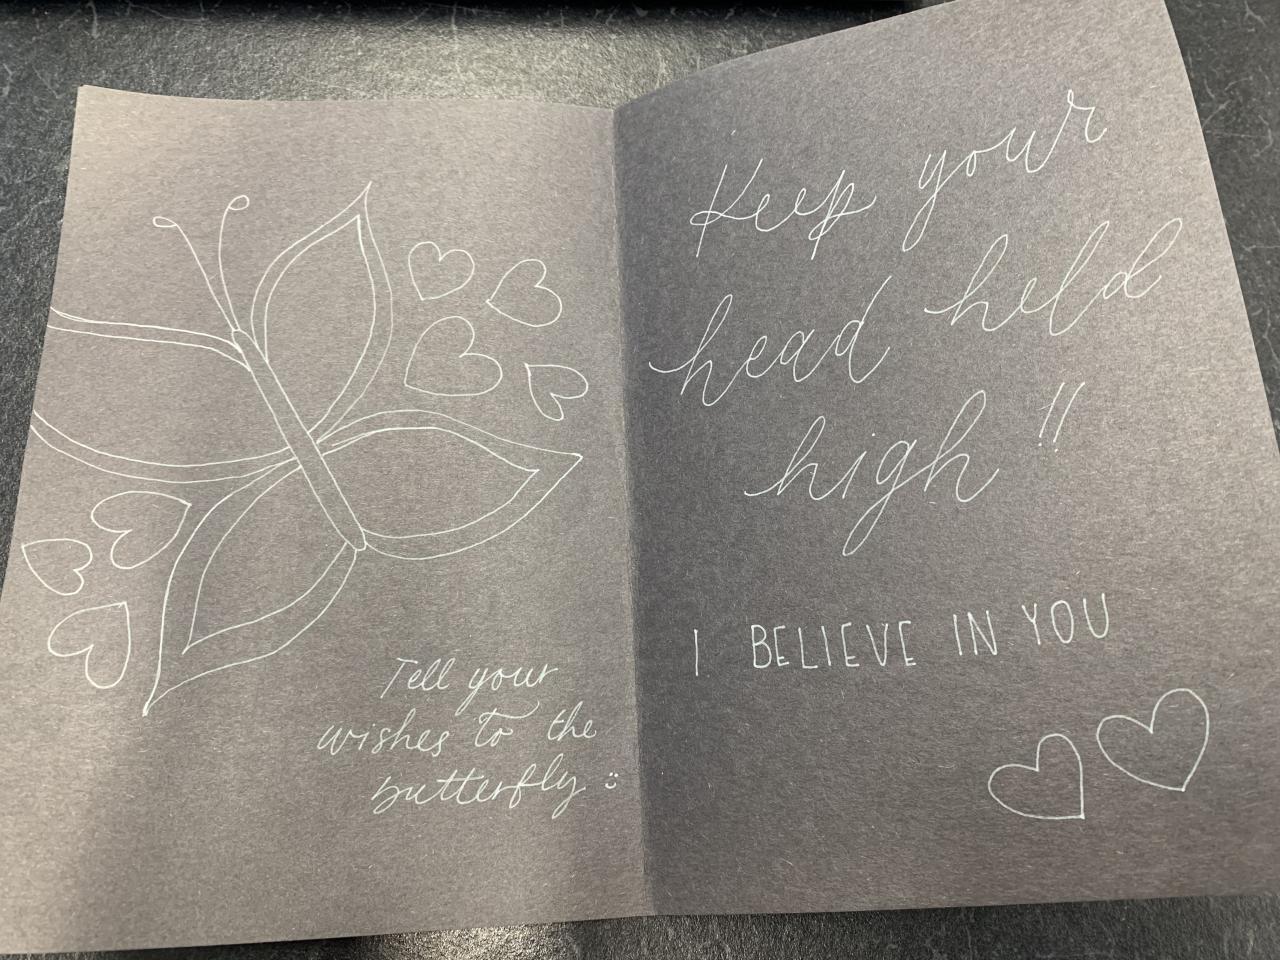 Tell your
wishes to the
butterfly :)
Keep your
head held
high!!
I BELIEVE IN YOU